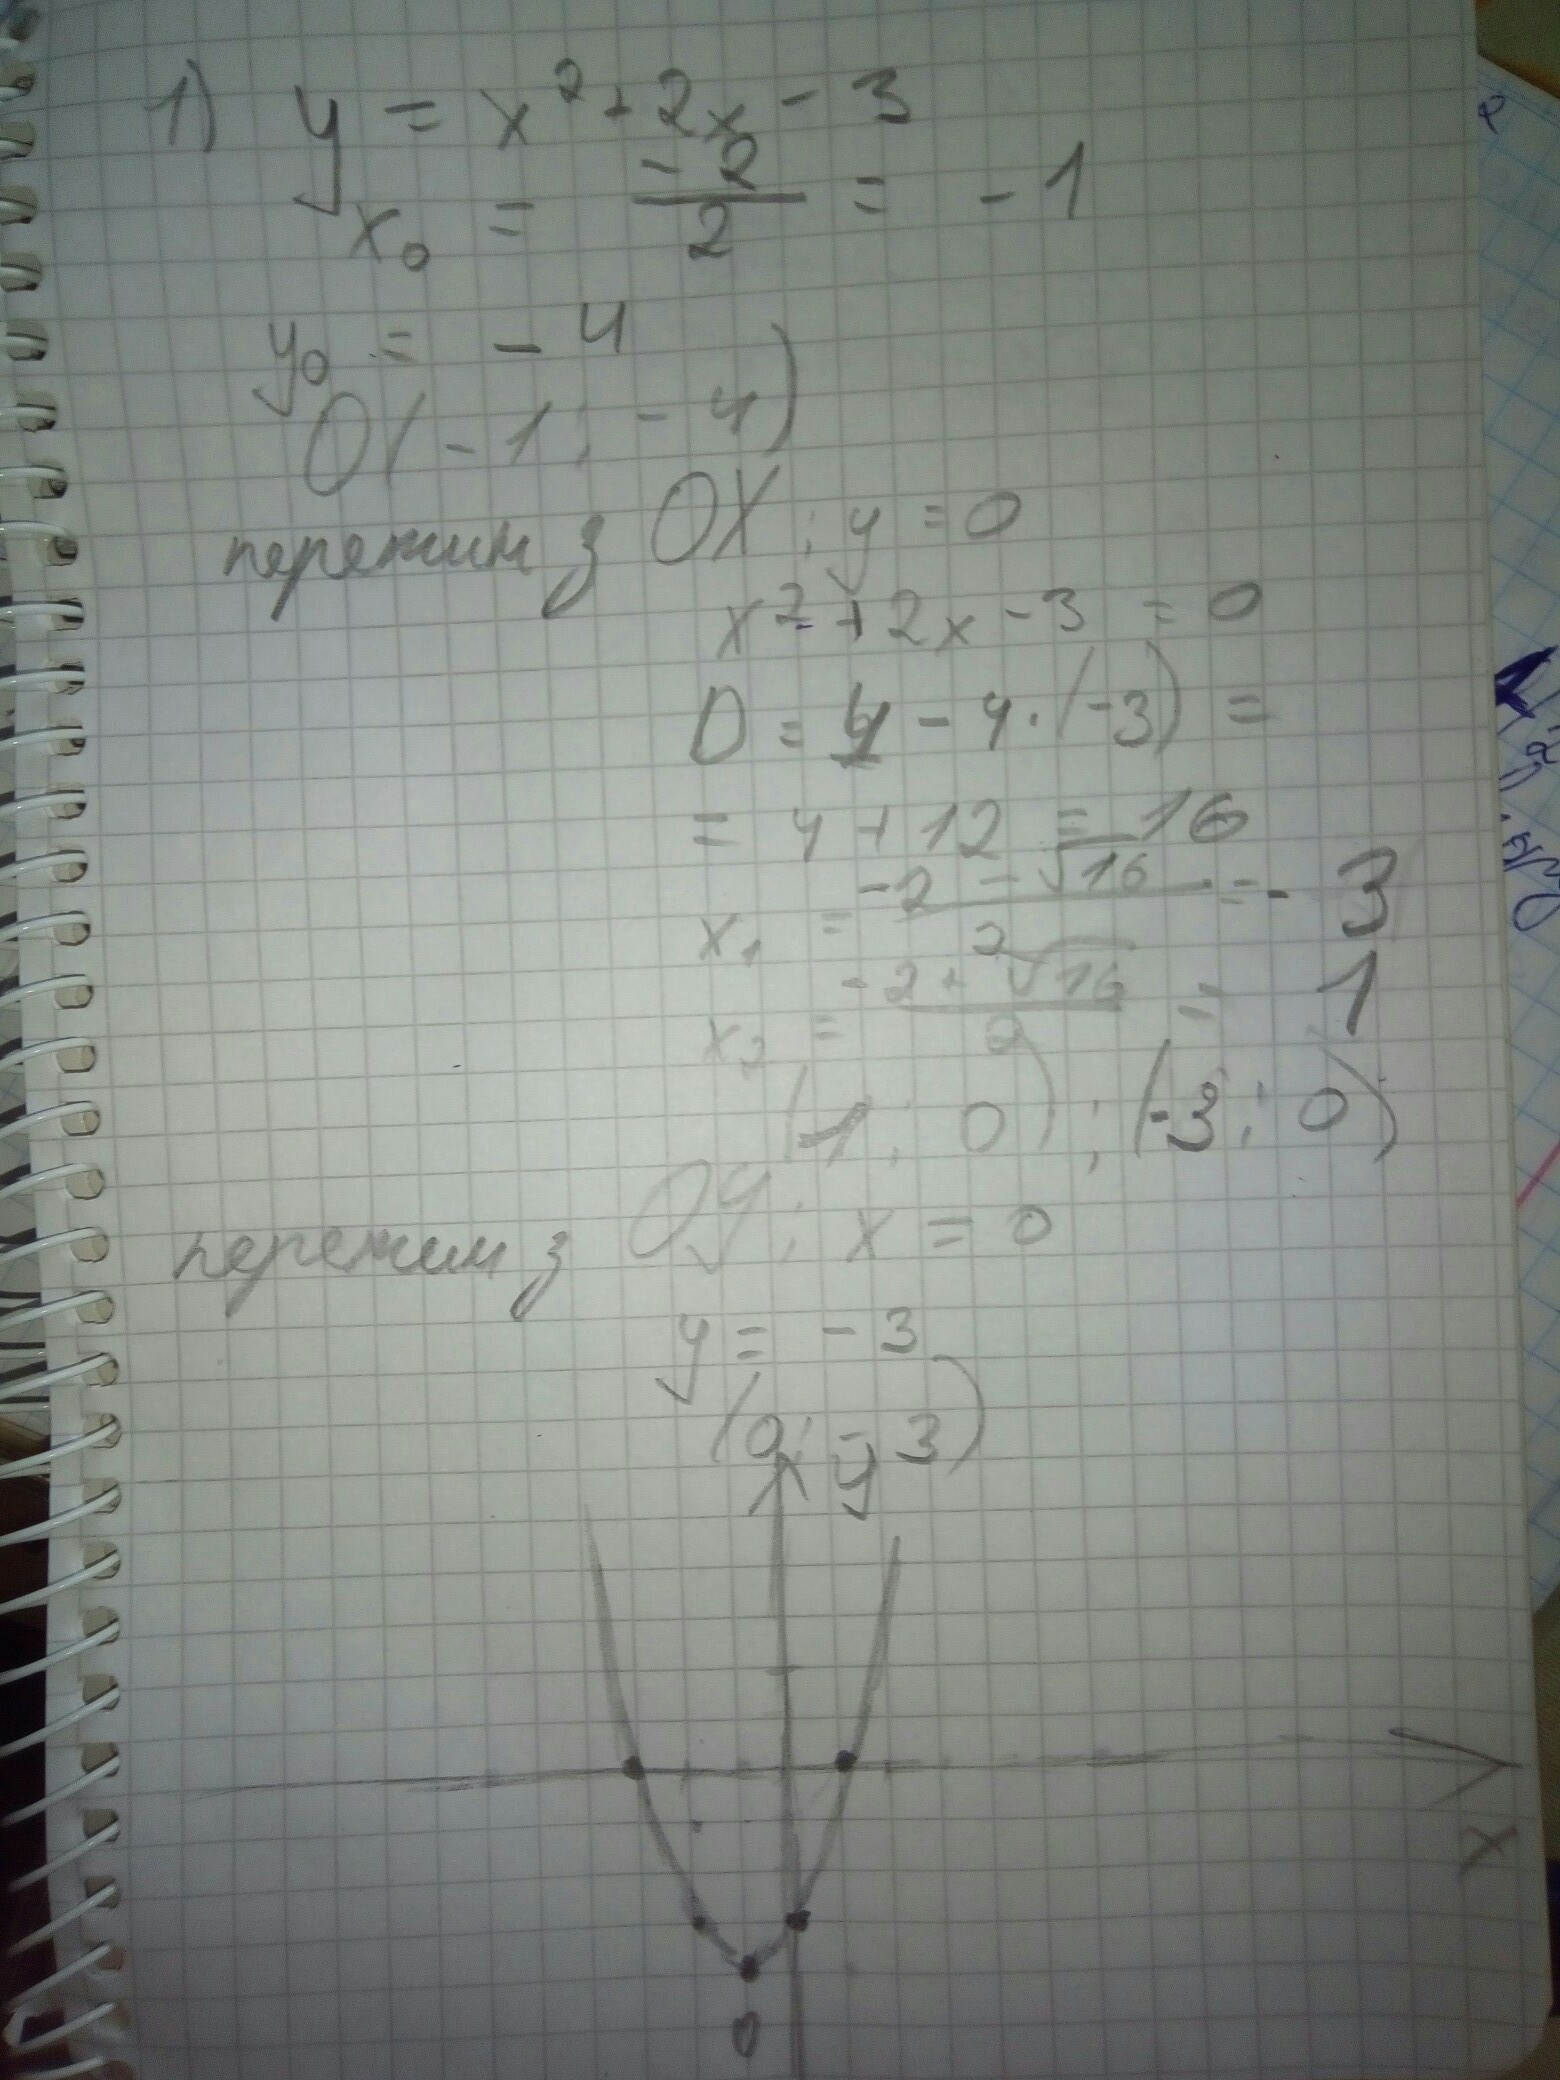 1) y = x² + 2x - 3
x₀ = -2/2 = -1
y₀ = -4
O(-1; -4)
перетин з OX: y = 0
x² + 2x - 3 = 0
D = 4 - 4·(-3) =
= 4 + 12 = 16
x₁ = (-2 - √16)/2 = -3
x₂ = (-2 + √16)/2 = 1
(1; 0); (-3; 0)
перетин з Oy: x = 0
y = -3
(0; -3)
y
x
0